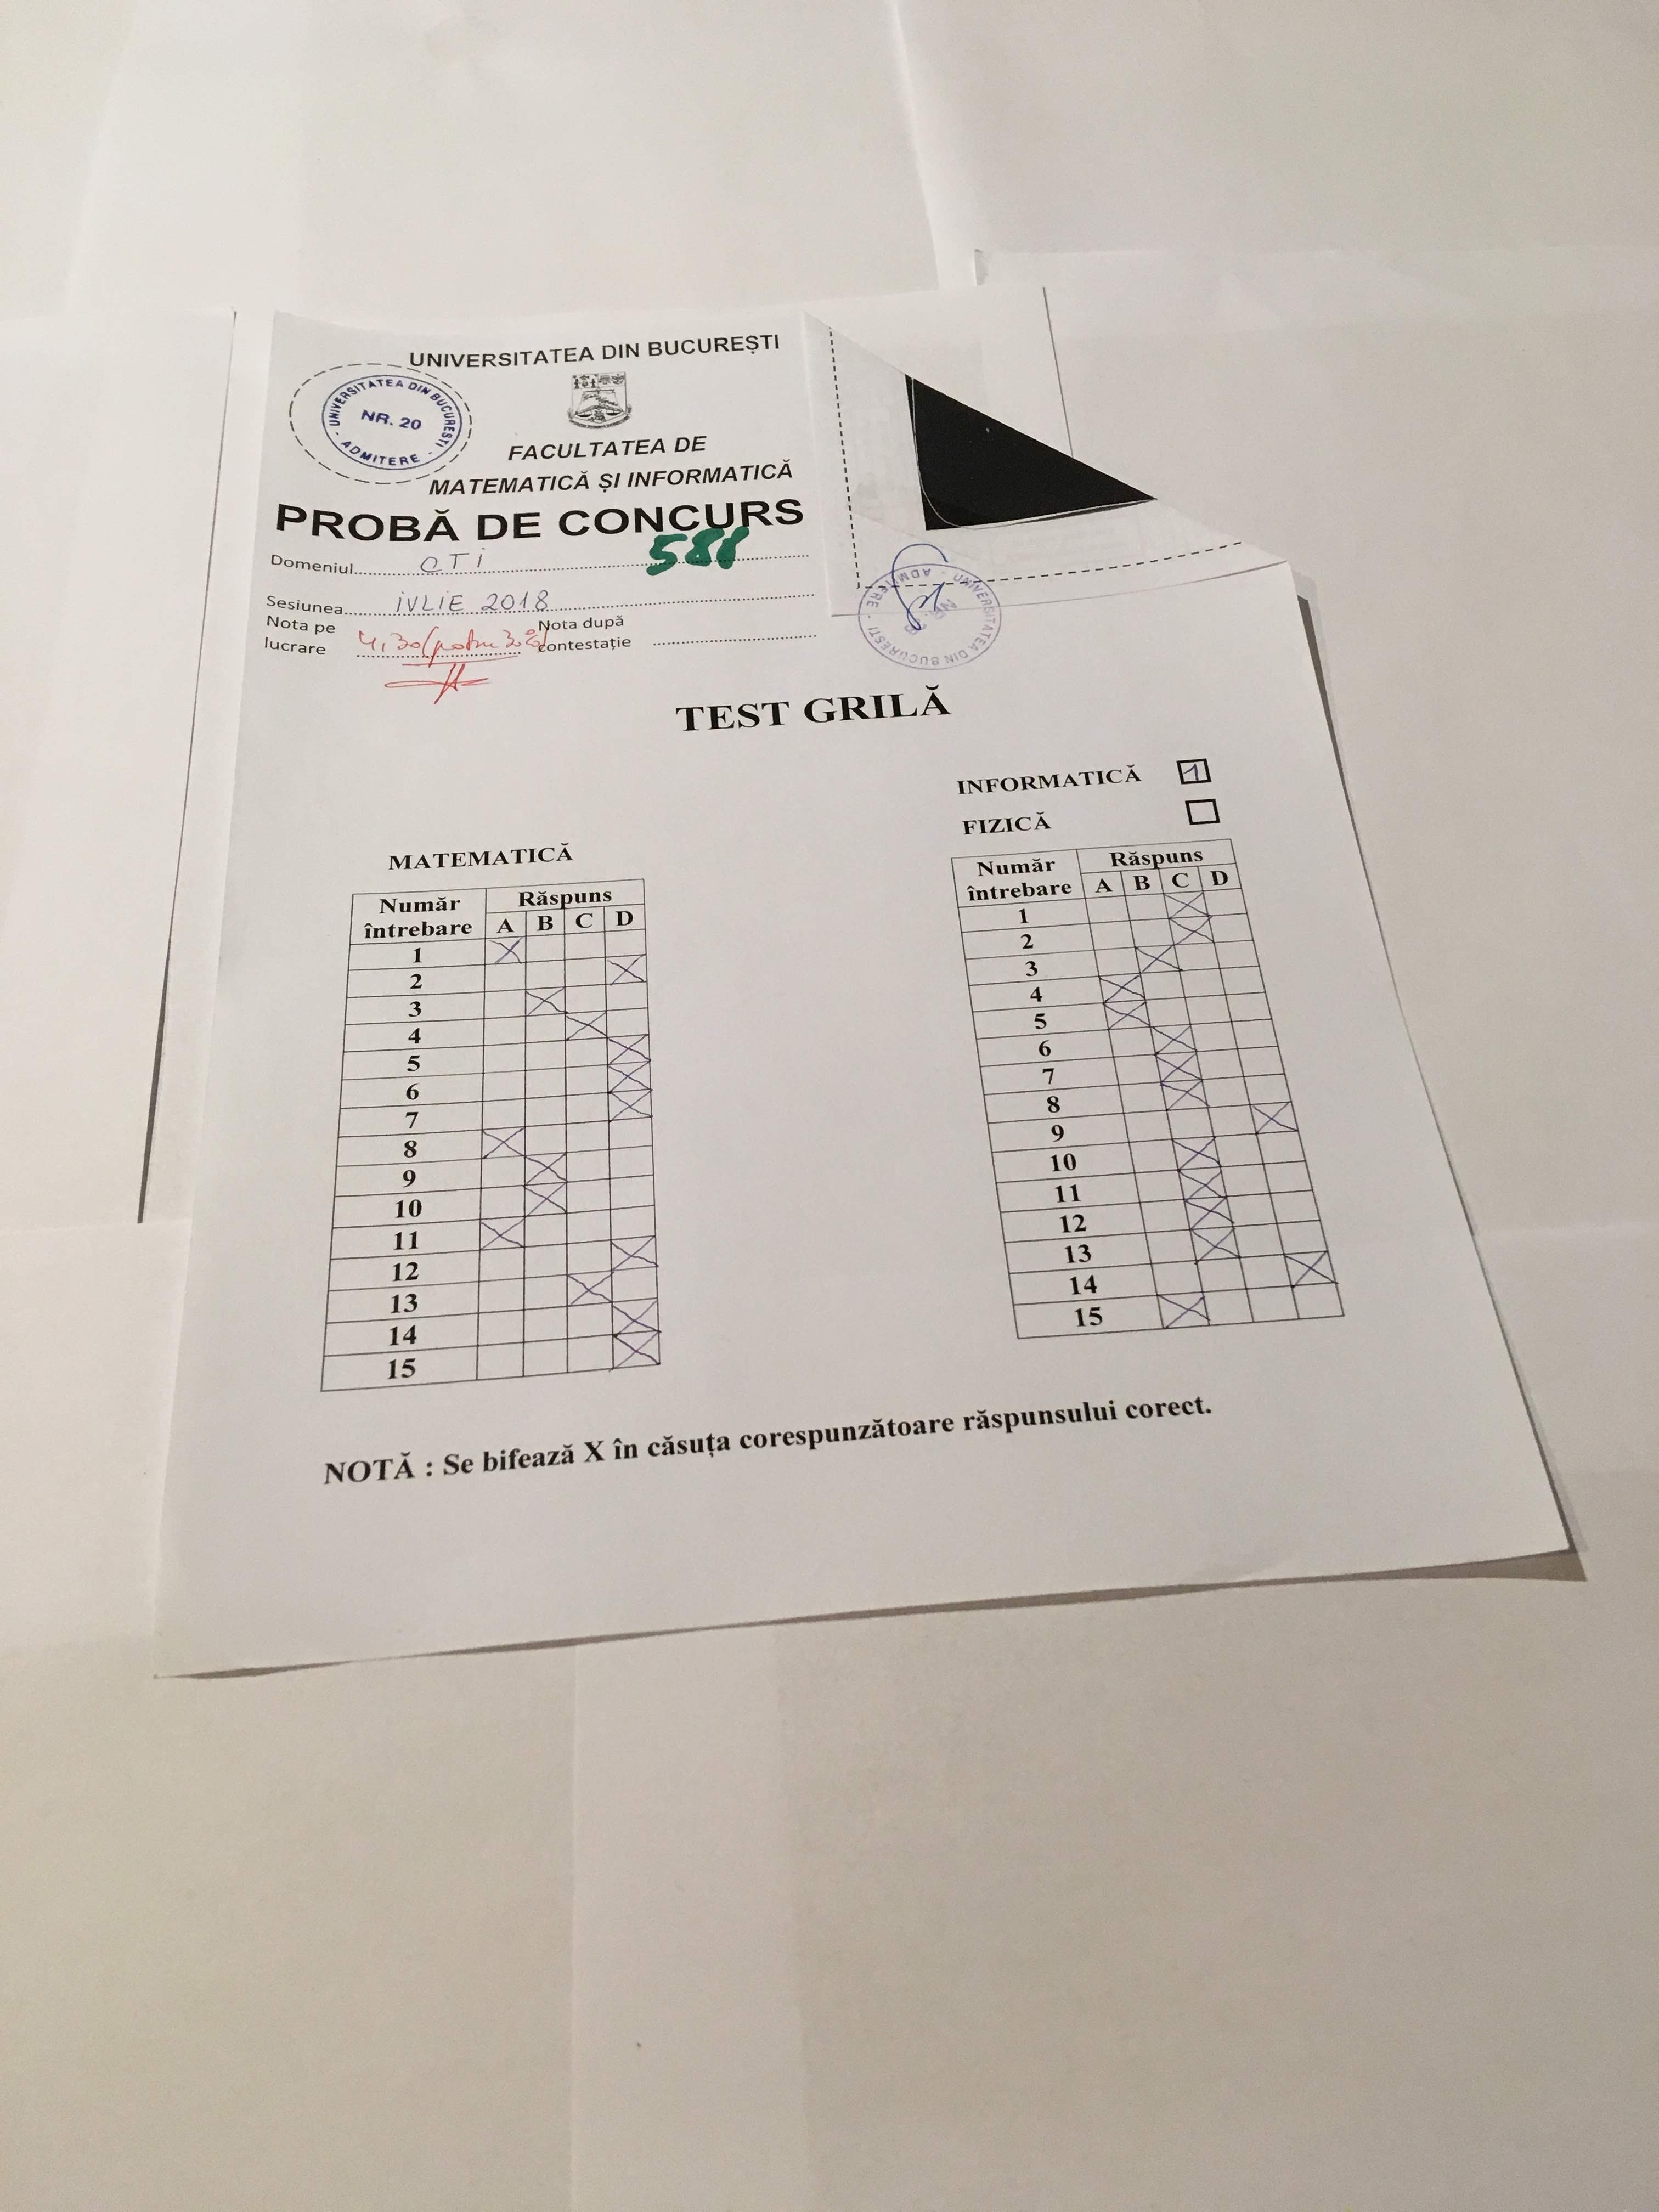 UNIVERSITATEA DIN BUCUREȘTI
UNIVERSITATEA DIN BUCUREȘTI - ADMITERE -
NR. 20
FACULTATEA DE
MATEMATICĂ ȘI INFORMATICĂ
PROBĂ DE CONCURS
588
Domeniul CTI
Sesiunea IULIE 2018
Nota pe lucrare 4,30 (patru 30%)
Nota după contestație
UNIVERSITATEA DIN BUCUREȘTI - ADMITERE
TEST GRILĂ
INFORMATICĂ 1
FIZICĂ
MATEMATICĂ
Număr întrebare Răspuns
A B C D
1 X
2 X
3 X
4 X
5 X
6 X
7 X
8 X
9 X
10 X
11 X
12 X
13 X
14 X
15 X
Număr întrebare Răspuns
A B C D
1 X
2 X
3 X
4 X
5 X
6 X
7 X
8 X
9 X
10 X
11 X
12 X
13 X
14 X
15 X
NOTĂ : Se bifează X în căsuța corespunzătoare răspunsului corect.